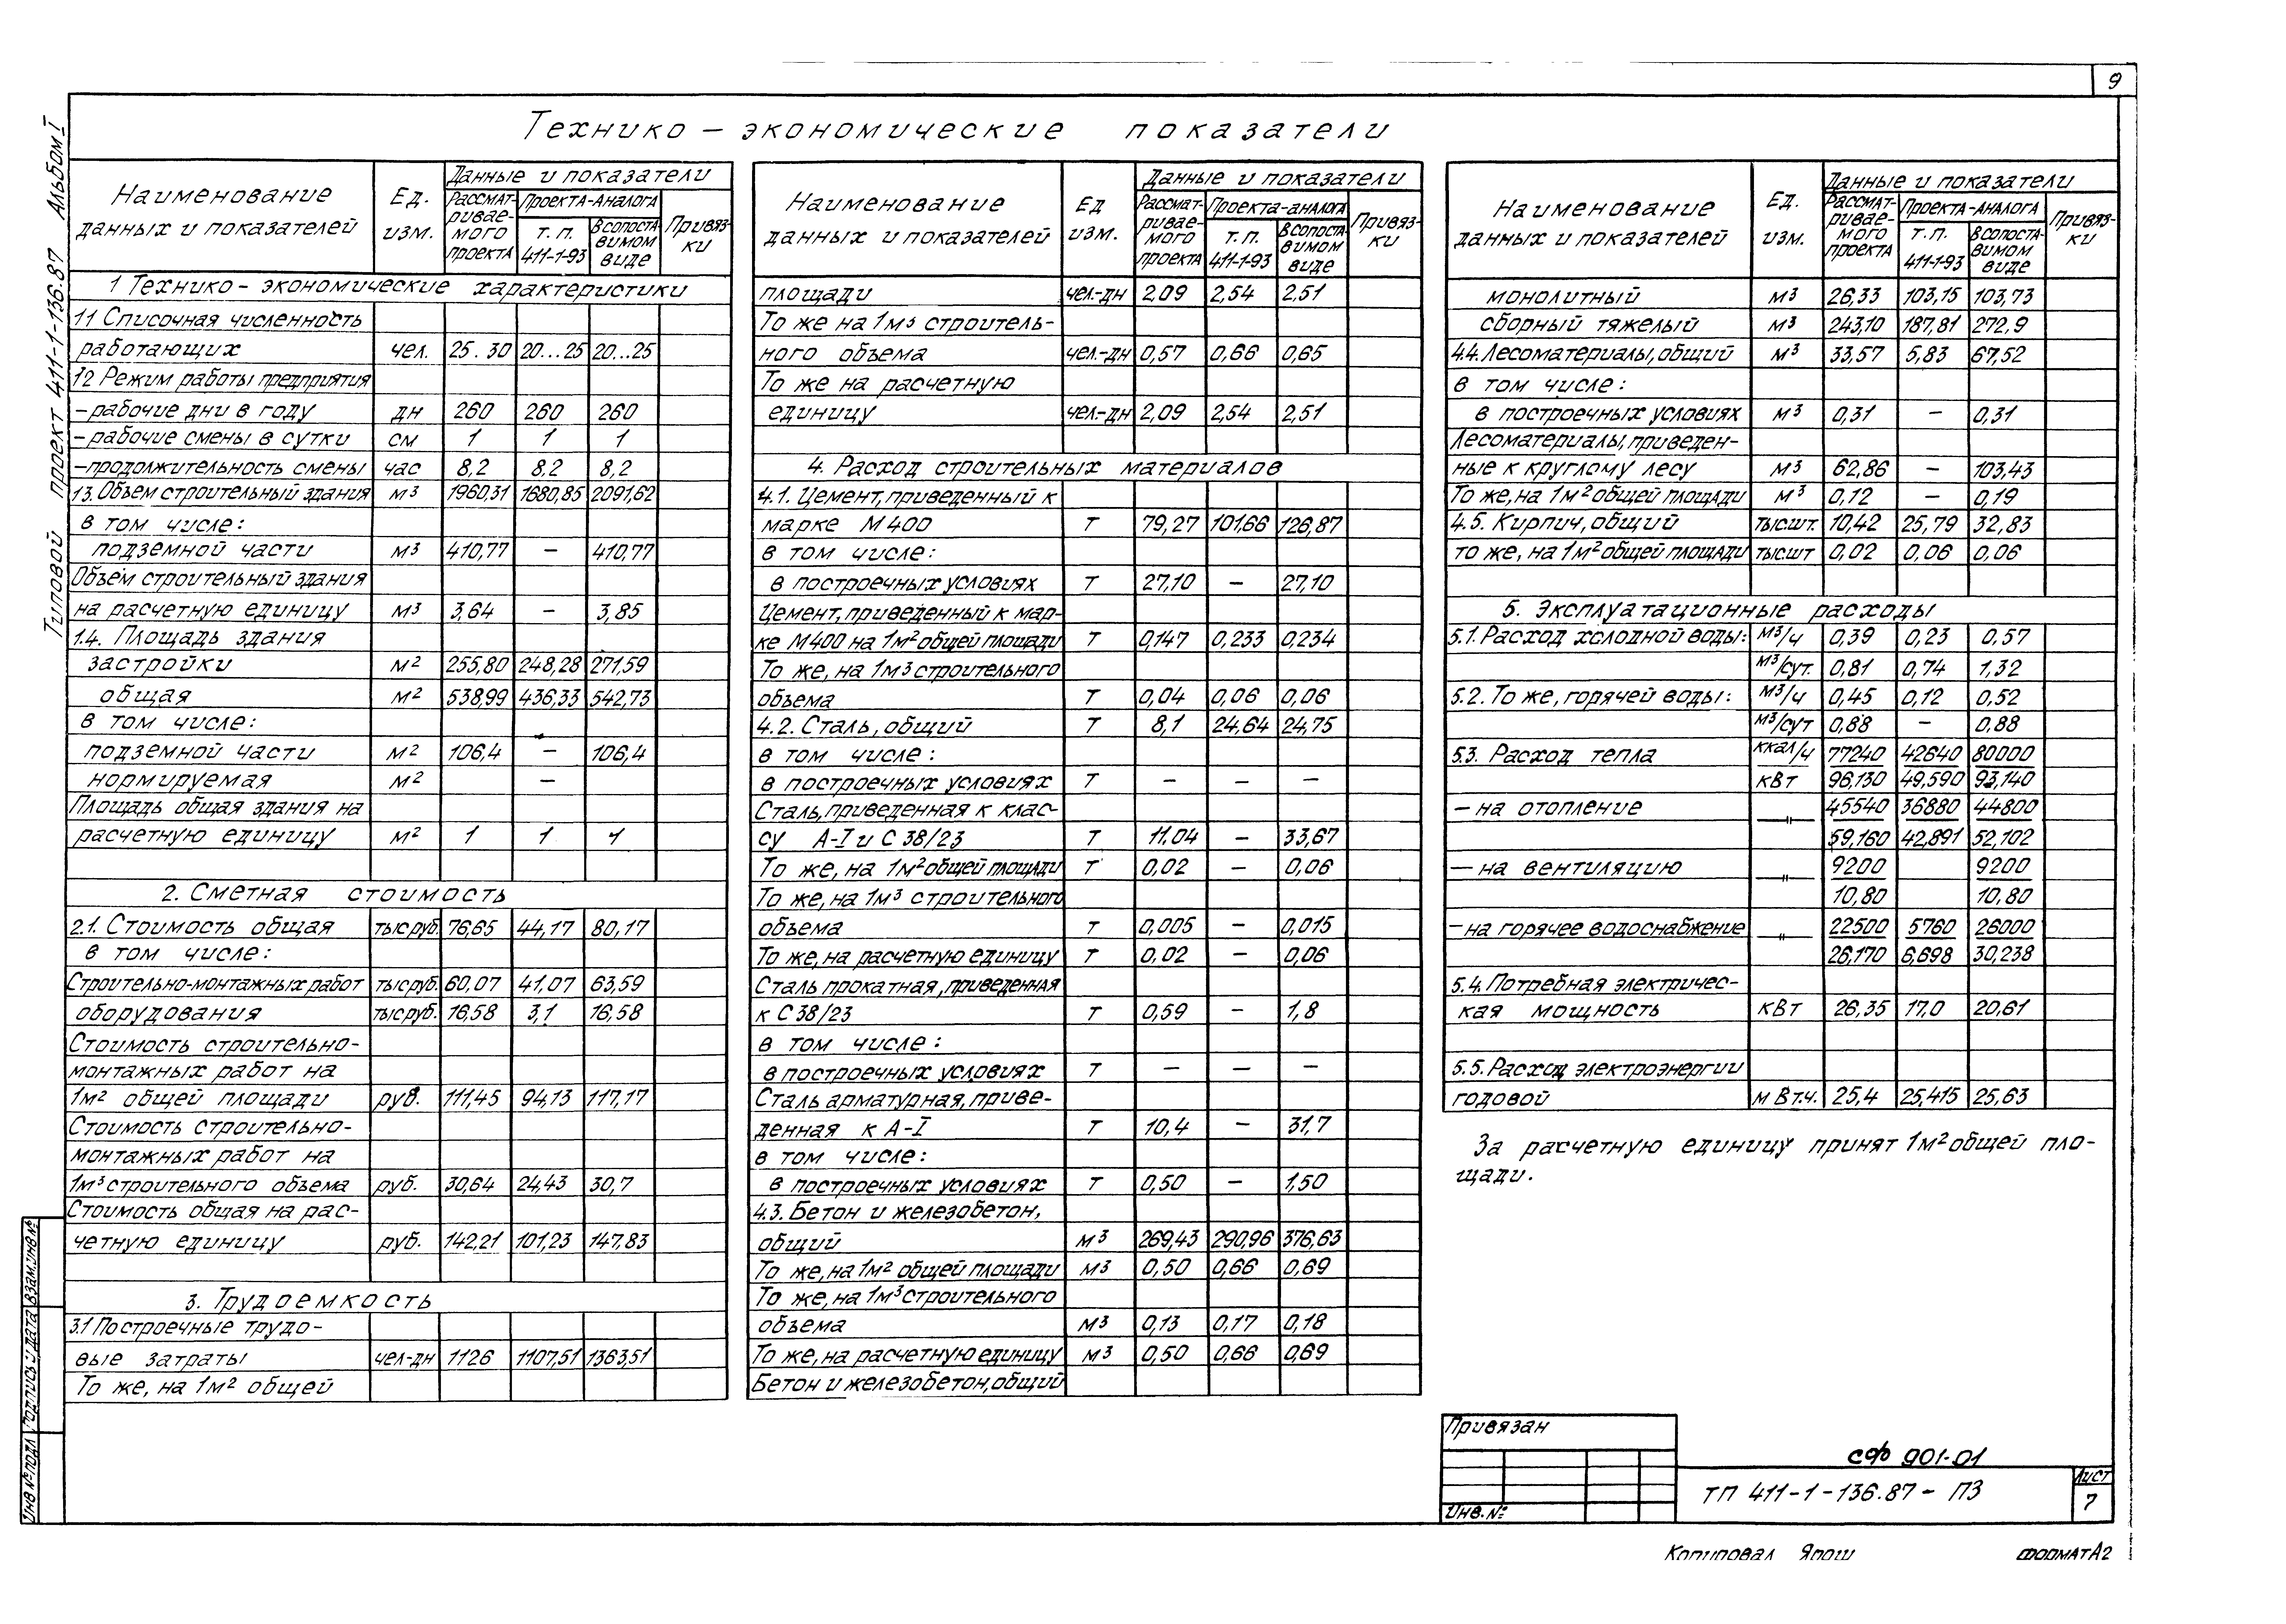 9
Технико – экономические показатели
Типовой проект 411-1-136.87 Альбом I
Наименование данных и показателей
Ед. изм.
Данные и показатели
Рассматриваемого проекта
Проекта-аналога
т. п. 411-1-93
В сопоставимом виде
Привязки
1 Технико – экономические характеристики
11 Списочная численность
работающих чел. 25. 30 20...25 20..25
12 Режим работы предприятия
– рабочие дни в году дн 260 260 260
– рабочие смены в сутки см 1 1 1
– продолжительность смены час 8,2 8,2 8,2
13. Объем строительный здания м³ 1960,31 1680,85 2091,62
в том числе:
подземной части м³ 410,77 – 410,77
Объем строительный здания
на расчетную единицу м³ 3,64 – 3,85
1.4. Площадь здания
застройки м² 255,80 248,28 271,59
общая м² 538,99 436,33 542,73
в том числе:
подземной части м² 106,4 – 106,4
нормируемая м² –
Площадь общая здания на
расчетную единицу м² 1 1 1
2. Сметная стоимость
2.1. Стоимость общая тыс руб. 76,65 44,17 80,17
в том числе:
Строительно-монтажных работ тыс руб. 60,07 41,07 63,59
оборудования тыс руб. 16,58 3,1 16,58
Стоимость строительно-
монтажных работ на
1м² общей площади руб. 111,45 94,13 117,17
Стоимость строительно-
монтажных работ на
1м³ строительного объема руб. 30,64 24,43 30,7
Стоимость общая на рас-
четную единицу руб. 142,21 101,23 147,83
3. Трудоемкость
3.1 Построечные трудо-
вые затраты чел-дн 1126 1107,51 1363,51
То же, на 1м² общей
Наименование данных и показателей
Ед изм.
Данные и показатели
Рассматриваемого проекта
Проекта-аналога
т.п. 411-1-93
В сопоставимом виде
Привязки
площади чел.-дн 2,09 2,54 2,51
То же на 1м³ строитель-
ного объема чел.-дн 0,57 0,66 0,65
То же на расчетную
единицу чел.-дн 2,09 2,54 2,51
4. Расход строительных материалов
4.1. Цемент, приведенный к
марке М 400 т 79,27 101,66 126,87
в том числе:
в построечных условиях т 27,10 – 27,10
Цемент, приведенный к мар-
ке М400 на 1м² общей площади т 0,147 0,233 0,234
То же, на 1м³ строительного
объема т 0,04 0,06 0,06
4.2. Сталь, общий т 8,1 24,64 24,75
в том числе:
в построечных условиях т – – –
Сталь, приведенная к клас-
су А-I и С 38/23 т 11.04 – 33,67
То же, на 1м² общей площади т 0,02 – 0,06
То же, на 1м³ строительного
объема т 0,005 – 0,015
То же, на расчетную единицу т 0,02 – 0,06
Сталь прокатная, приведенная
к С 38/23 т 0,59 – 1,8
в том числе:
в построечных условиях т – – –
Сталь арматурная, приве-
денная к А-I т 10,4 – 31,7
в том числе:
в построечных условиях т 0,50 – 1,50
4.3. Бетон и железобетон,
общий м³ 269,43 290,96 376,63
То же, на 1м² общей площади м³ 0,50 0,66 0,69
То же, на 1м³ строительного
объема м³ 0,13 0,17 0,18
То же, на расчетную единицу м³ 0,50 0,66 0,69
Бетон и железобетон, общий
Наименование данных и показателей
Ед. изм.
Данные и показатели
Рассматриваемого проекта
Проекта-аналога
т.п. 411-1-93
В сопоставимом виде
Привязки
монолитный м³ 26,33 103,15 103,73
сборный тяжелый м³ 243,10 187,81 272,9
4.4. Лесоматериалы, общий м³ 33,57 5,83 67,52
в том числе:
в построечных условиях м³ 0,31 – 0,31
Лесоматериалы, приведен-
ные к круглому лесу м³ 62,86 – 103,43
То же, на 1м² общей площади м³ 0,12 – 0,19
4.5. Кирпич, общий тыс шт. 10,42 25,79 32,83
то же, на 1м² общей площади тыс шт 0,02 0,06 0,06
5. Эксплуатационные расходы
5.1. Расход холодной воды: м³/ч 0,39 0,23 0,57
м³/сут. 0,81 0,74 1,32
5.2. То же, горячей воды: м³/ч 0,45 0,12 0,52
м³/сут 0,88 – 0,88
5.3. Расход тепла ккал/ч 77240 42640 80000
кВт 96,130 49,590 93,140
– на отопление –"– 45540 36880 44800
59,160 42,891 52,102
– на вентиляцию –"– 9200 9200
10,80 10,80
– на горячее водоснабжение –"– 22500 5760 26000
26,170 6,698 30,238
5.4. Потребная электричес-
кая мощность кВт 26,35 17,0 20,61
5.5. Расход электроэнергии
годовой мВт.ч. 25,4 25,415 25,63
За расчетную единицу принят 1м² общей пло-
щади.
Привязан
Инв. №
сф 901-01
ТП 411-1-136.87 – ПЗ
Лист
7
Копировал Япош
Формат А2
Инв № подл Подпись и дата Взам. инв №